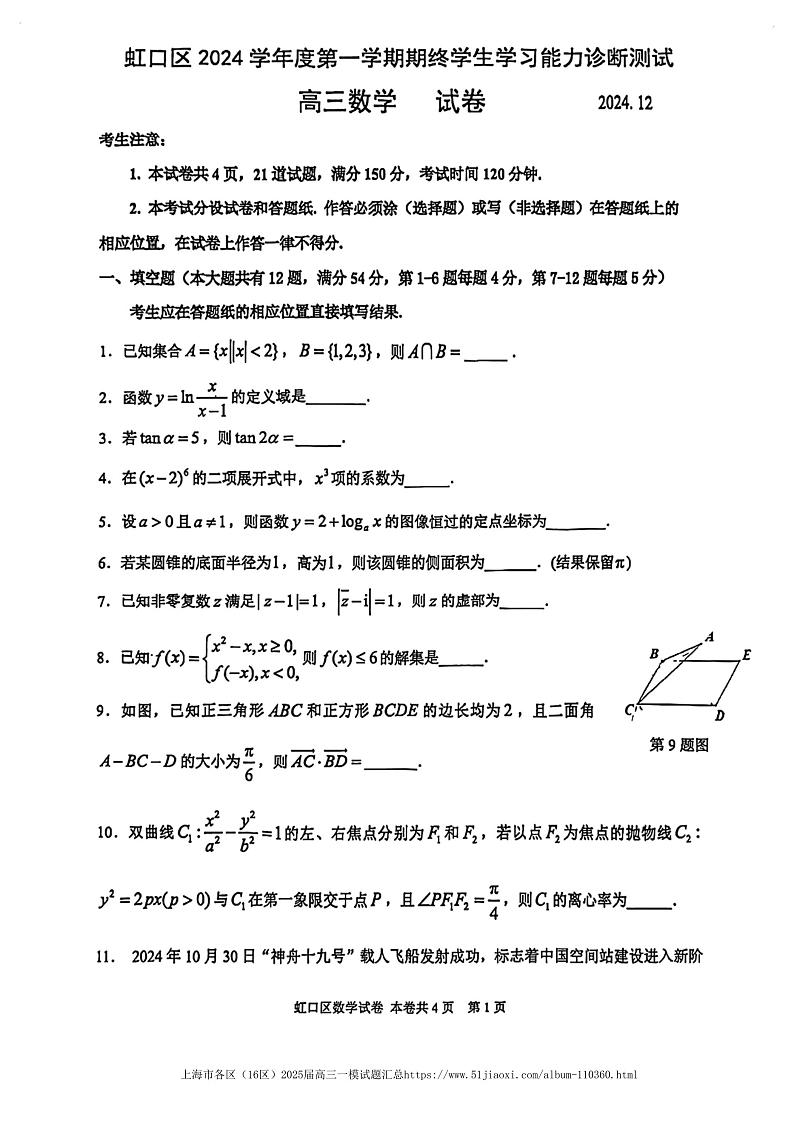 虹口区 2024 学年度第一学期期终学生学习能力诊断测试
高三数学 试卷 2024.12
考生注意：
1. 本试卷共 4 页，21 道试题，满分 150 分，考试时间 120 分钟.
2. 本考试分设试卷和答题纸. 作答必须涂（选择题）或写（非选择题）在答题纸上的
相应位置，在试卷上作答一律不得分.
一、填空题（本大题共有 12 题，满分 54 分，第 1-6 题每题 4 分，第 7-12 题每题 5 分）
考生应在答题纸的相应位置直接填写结果.
1. 已知集合 A={x||x|<2}，B={1,2,3}，则 A∩B=_____.
2. 函数 y=ln x/(x-1) 的定义域是_______.
3. 若 tanα=5，则 tan2α=_____.
4. 在 (x-2)⁶ 的二项展开式中，x³ 项的系数为_____.
5. 设 a>0 且 a≠1，则函数 y=2+logₐx 的图像恒过的定点坐标为_______.
6. 若某圆锥的底面半径为1，高为1，则该圆锥的侧面积为______. (结果保留π)
7. 已知非零复数 z 满足 |z-1|=1，|z̅-i|=1，则 z 的虚部为_____.
8. 已知 f(x)={x²-x, x≥0, f(-x), x<0, 则 f(x)≤6 的解集是_____.
A
B
E
C
D
9. 如图，已知正三角形 ABC 和正方形 BCDE 的边长均为 2，且二面角
第 9 题图
A-BC-D 的大小为 π/6，则 AC⃗·BD⃗=______.
10. 双曲线 C₁: x²/a² - y²/b² =1 的左、右焦点分别为 F₁ 和 F₂，若以点 F₂ 为焦点的抛物线 C₂：
y²=2px(p>0) 与 C₁ 在第一象限交于点 P，且∠PF₁F₂=π/4，则 C₁ 的离心率为_____.
11. 2024 年 10 月 30 日“神舟十九号”载人飞船发射成功，标志着中国空间站建设进入新阶
虹口区数学试卷 本卷共 4 页 第 1 页
上海市各区（16区）2025届高三一模试题汇总https://www.51jiaoxi.com/album-110360.html